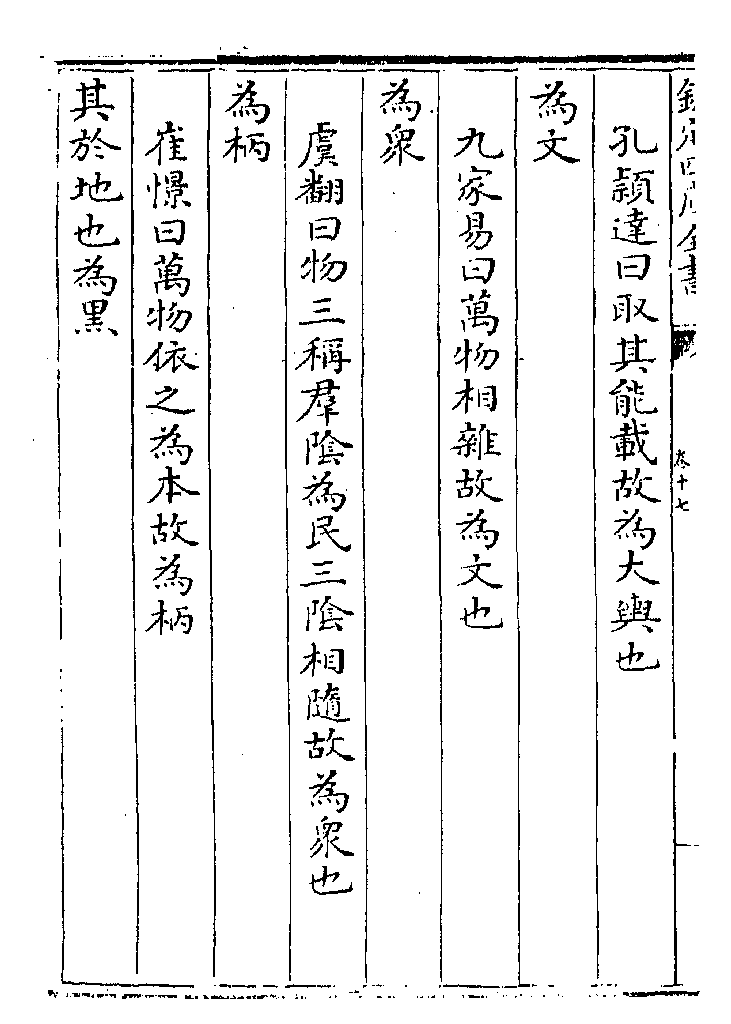 欽定四庫全書
卷十七
孔穎達曰取其能載故為大輿也
為文
九家易曰萬物相雜故為文也
為衆
虞翻曰物三稱羣陰為民三陰相隨故為衆也
為柄
崔憬曰萬物依之為本故為柄
其於地也為黒